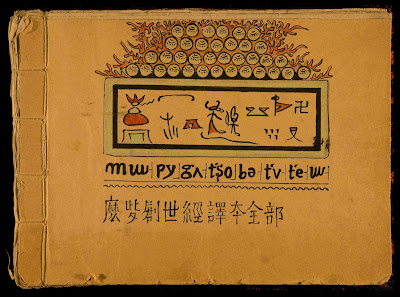 mɯ py gʌ tʂ‘o bə t‘v t‘e ɯ
麼些創世經譯夲全部